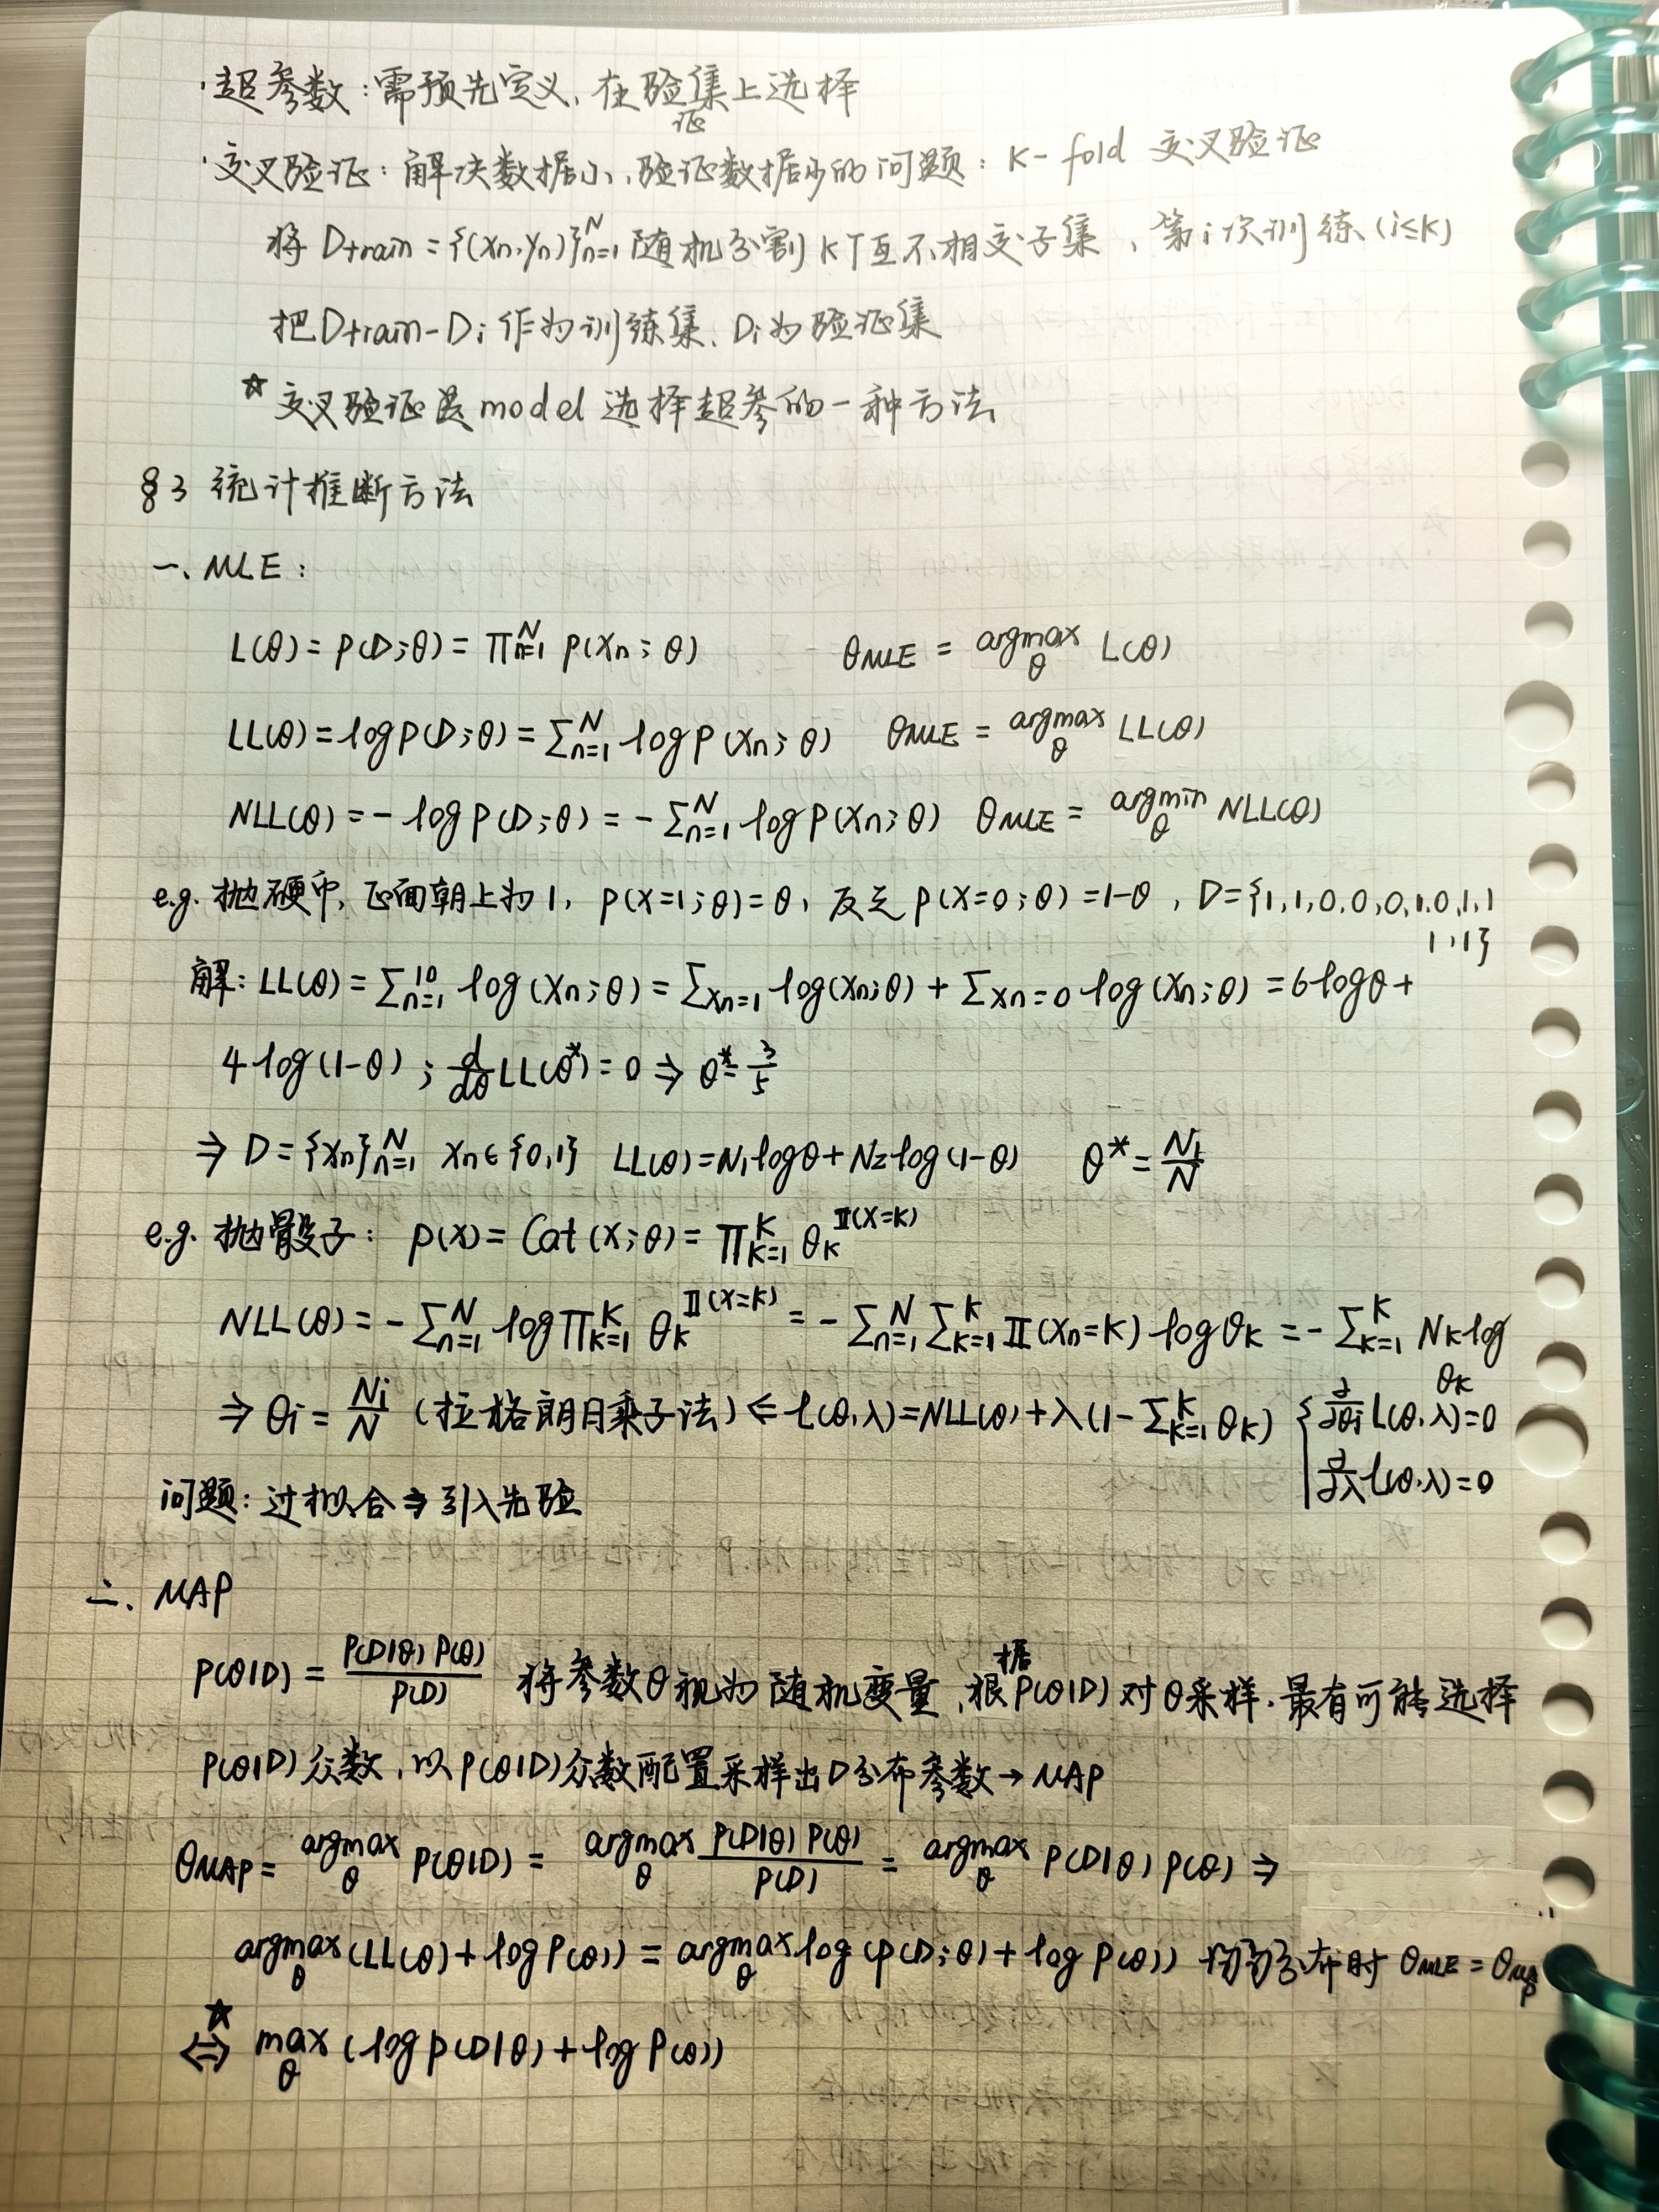 ·超参数:需预先定义、在验证集上选择
·交叉验证:解决数据小、验证数据少的问题:K-fold 交叉验证
将 Dtrain = {(xn,yn)}ₙ₌₁ᴺ 随机分割 K个互不相交子集、第i次训练 (i≤K)
把Dtrain-Di作为训练集、Di为验证集
☆ 交叉验证是model 选择超参的一种方法
§3 统计推断方法
一、MLE:
L(θ) = p(D;θ) = ∏ₙ₌₁ᴺ p(xn;θ) θMLE = argmax_θ L(θ)
LL(θ) = log p(D;θ) = ∑ₙ₌₁ᴺ log p(xn;θ) θMLE = argmax_θ LL(θ)
NLL(θ) = - log p(D;θ) = - ∑ₙ₌₁ᴺ log p(xn;θ) θMLE = argmin_θ NLL(θ)
e.g. 抛硬币, 正面朝上为1, p(x=1;θ)=θ, 反之 p(x=0;θ)=1-θ, D={1,1,0,0,0,1,0,1,1
1,1}
解: LL(θ) = ∑ₙ₌₁¹⁰ log(xn;θ) = ∑xn=1 log(xn;θ) + ∑xn=0 log(xn;θ) = 6logθ +
4log(1-θ) ; d/dθ LL(θ*) = 0 ⇒ θ* = 3/5
⇒ D = {xn}ₙ₌₁ᴺ xn∈{0,1} LL(θ) = N₁logθ + N₂log(1-θ) θ* = N₁/N
e.g. 抛骰子: p(x) = Cat(x;θ) = ∏ₖ₌₁ᴷ θk^𝕀(x=k)
NLL(θ) = - ∑ₙ₌₁ᴺ log∏ₖ₌₁ᴷ θk^𝕀(x=k) = - ∑ₙ₌₁ᴺ ∑ₖ₌₁ᴷ 𝕀(xn=k) logθk = - ∑ₖ₌₁ᴷ Nk log θk
⇒ θi = Ni/N (拉格朗日乘子法) ⇐ l(θ,λ) = NLL(θ) + λ(1-∑ₖ₌₁ᴷ θk) { ∂/∂θi L(θ,λ)=0
∂/∂λ l(θ,λ)=0
问题: 过拟合⇒引入先验
二、MAP
P(θ|D) = P(D|θ) P(θ)/P(D) 将参数θ视为随机变量,根据P(θ|D)对θ采样.最有可能选择
P(θ|D)众数,以P(θ|D)众数配置采样出D分布参数→MAP
θMAP = argmax_θ P(θ|D) = argmax_θ P(D|θ) P(θ)/P(D) = argmax_θ P(D|θ) P(θ) ⇒
argmax_θ (LL(θ) + log P(θ)) = argmax_θ log (p(D;θ) + log p(θ)) 均匀分布时 θMLE = θMAP
☆ ⇔ max_θ (log p(D|θ) + log P(θ))